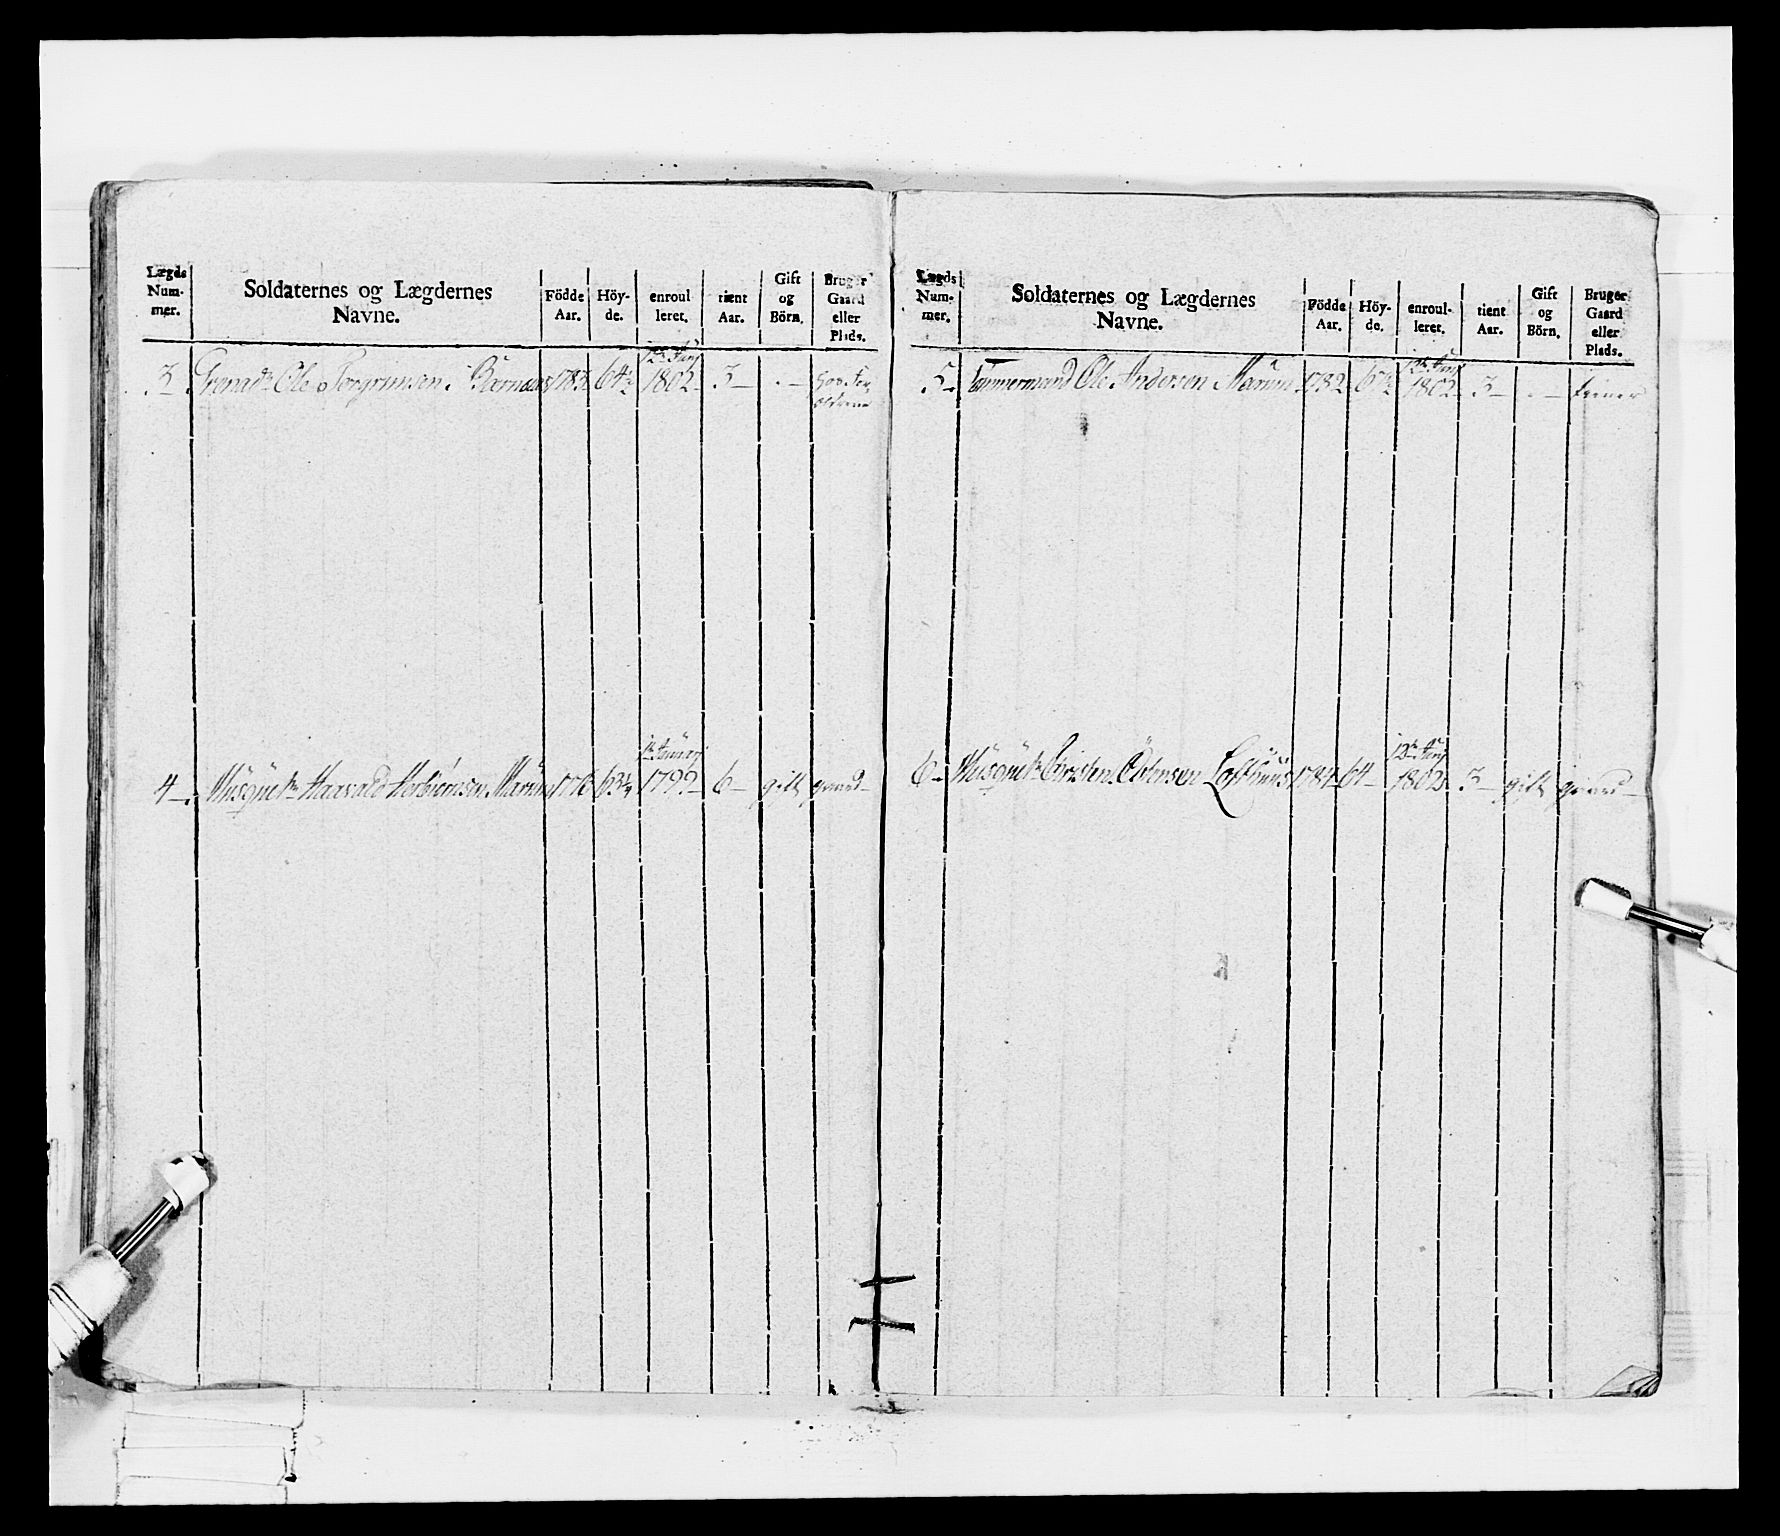 Lægds Num- mer.
Soldaternes og Lægdernes Navne.
Födde Aar.
Höy- de.
enroul leret.
tient Aar.
Gift og Börn.
Bruger Gaard eller Plads.
3 Grenadr Ole Torgrimsen Bærnæs 1783 64½ 12te Junj 1802 3 - hos For ældrene
4 Musquetr Haavald Torbiørnsen Marum 1776 63¼ 1te Januarj 1799 6 gift gaard
Lægds Num- mer.
Soldaternes og Lægdernes Navne.
Födde Aar.
Höy- de.
enroul- leret.
tient Aar.
Gift og Börn.
Bruger Gaard eller Plads.
5 Tømmermand Ole Andersen Marum 1782 67½ 12te Junj 1802 3 - tiener
6 Musquetr Cristen Østensen Lofthuus 1784 64 12te Junj 1802 3 gift gaard